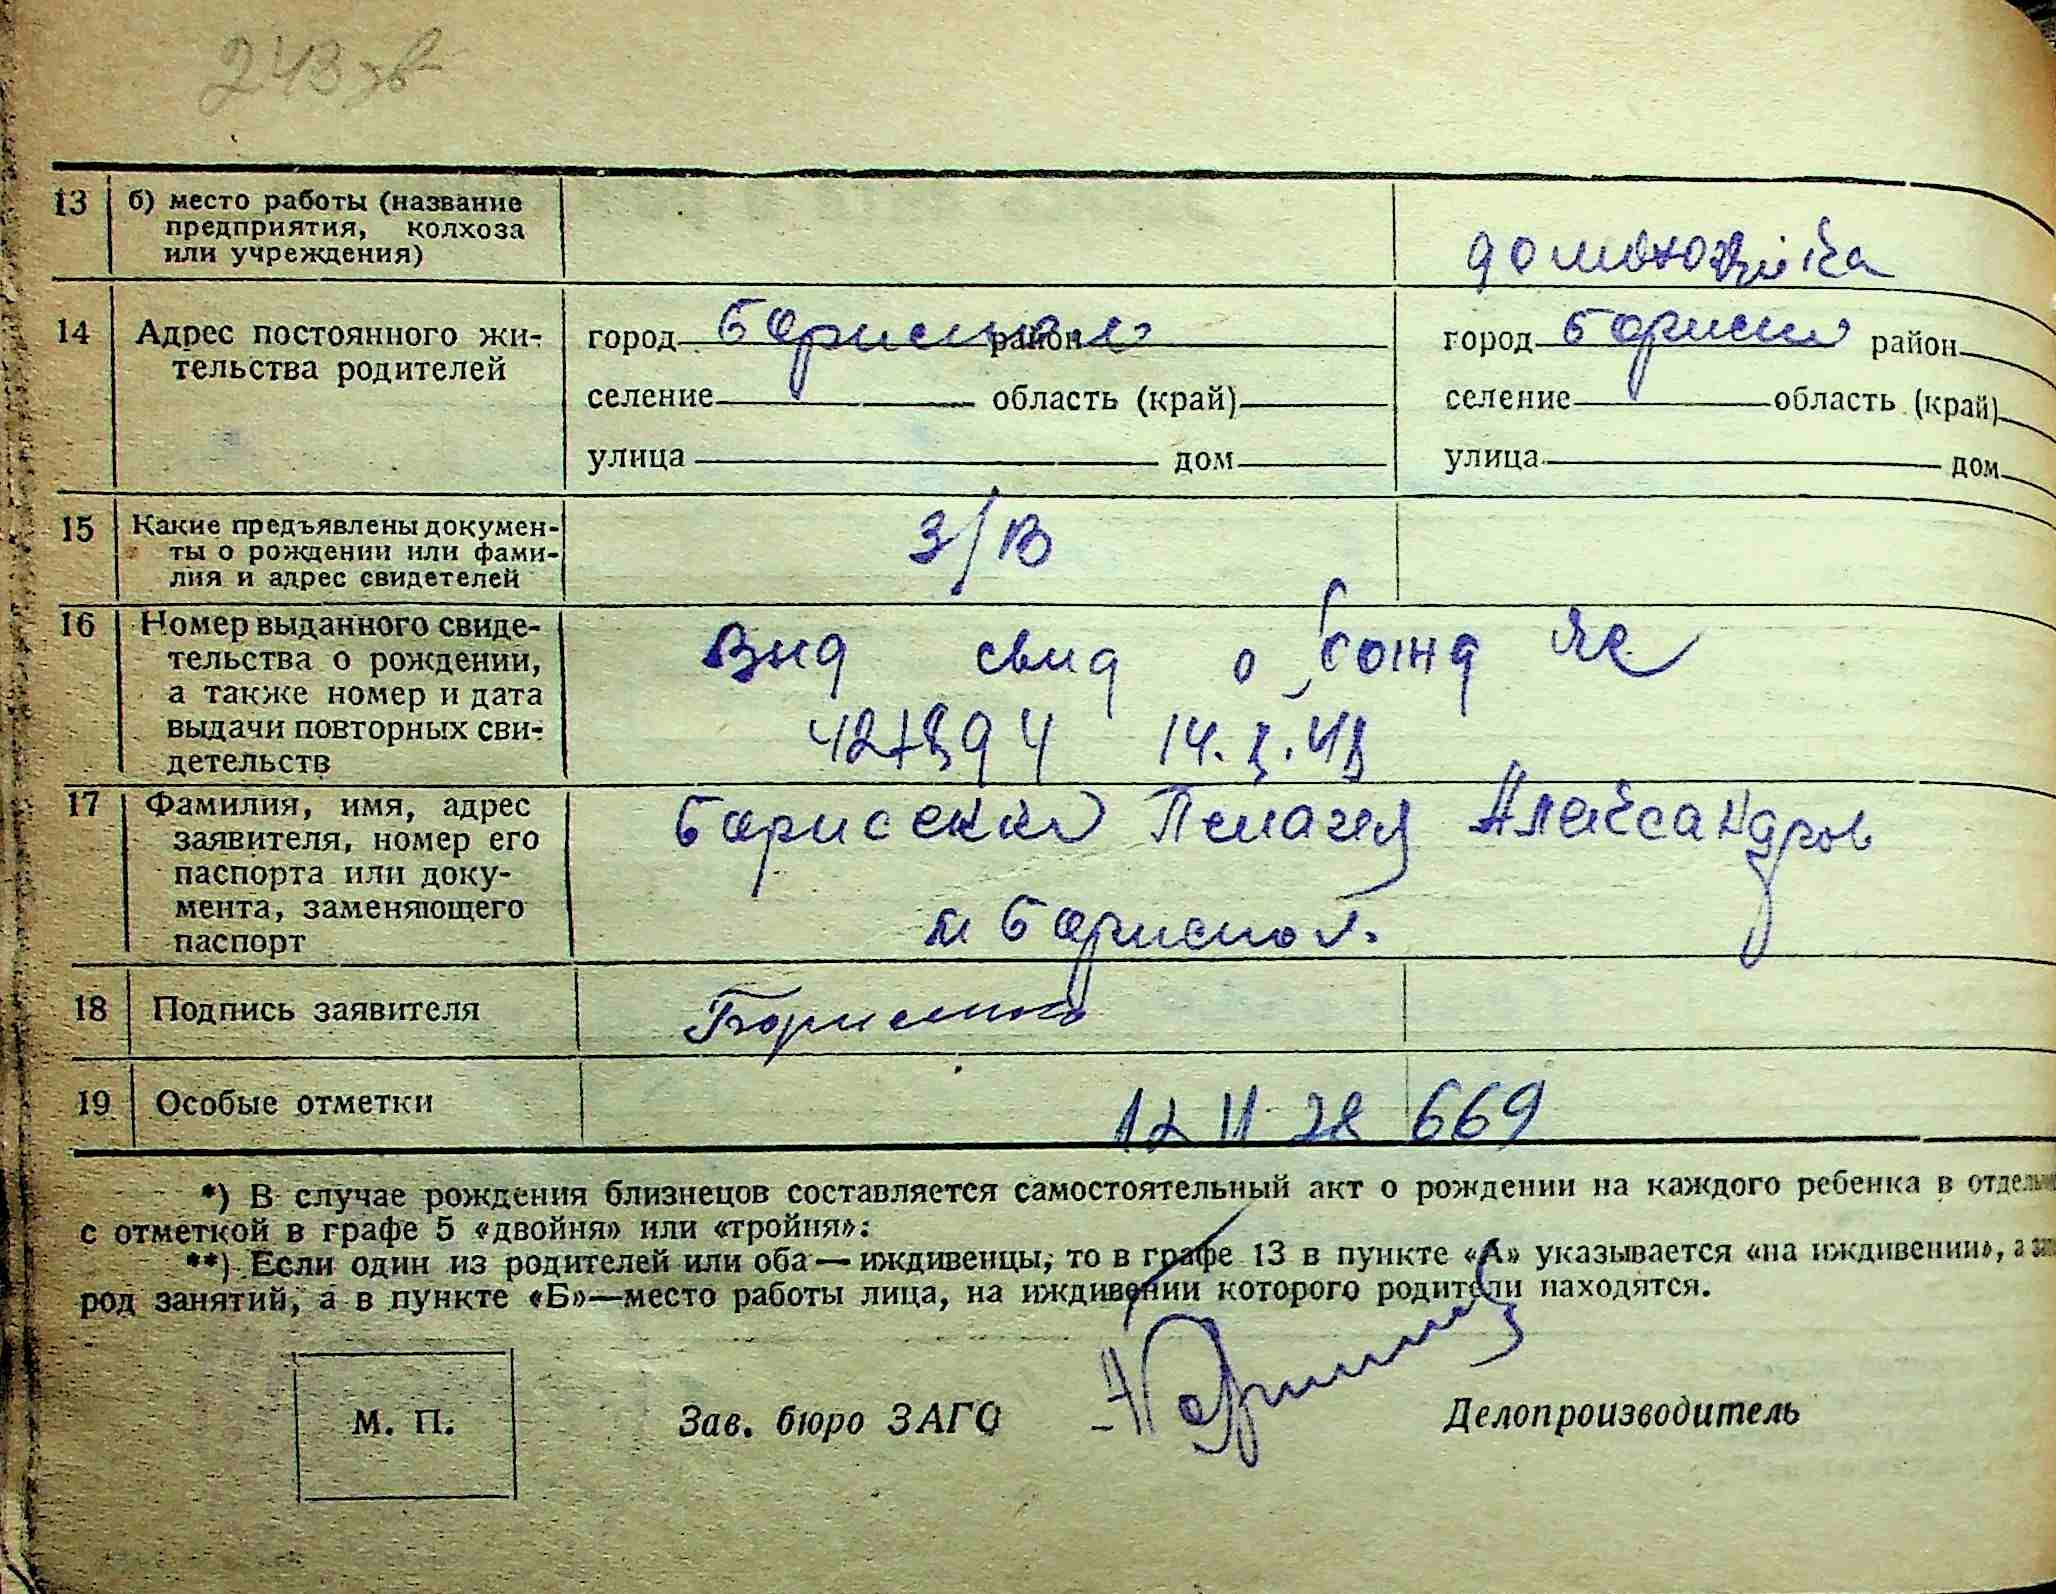 243
13 б) место работы (название
предприятия, колхоза
или учреждения)
домохозяйка
14 Адрес постоянного жи-
тельства родителей
город район город Борисполь район
селение область (край) селение область (край)
улица дом улица дом
15 Какие предъявлены докумен-
ты о рождении или фами-
лия и адрес свидетелей
З/В
16 Номер выданного свиде-
тельства о рождении,
а также номер и дата
выдачи повторных сви-
детельств
Выд свид о рожд
14.
17 Фамилия, имя, адрес
заявителя, номер его
паспорта или доку-
мента, заменяющего
паспорт
Пелагея Александров
м
18 Подпись заявителя
19 Особые отметки
12 11 28 669
*) В случае рождения близнецов составляется самостоятельный акт о рождении на каждого ребенка в
с отметкой в графе 5 «двойня» или «тройня»:
**) Если один из родителей или оба — иждивенцы, то в графе 13 в пункте «А» указывается «на иждивении», а
род занятий, а в пункте «Б»—место работы лица, на иждивении которого родители находятся.
М. П. Зав. бюро ЗАГС Делопроизводитель